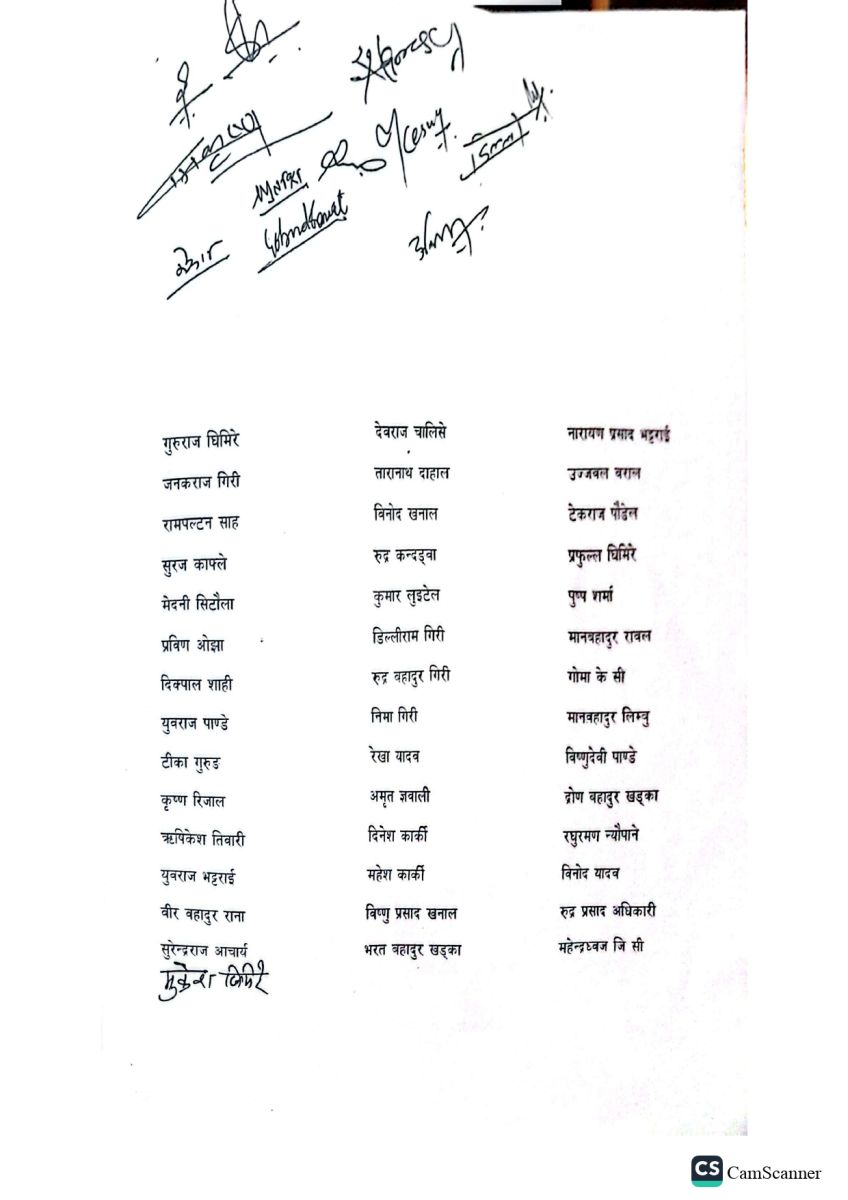 गुरुराज घिमिरे देवराज चालिसे नारायण प्रसाद भट्टराई
जनकराज गिरी तारानाथ दाहाल उज्जवल बराल
रामपल्टन साह विनोद खनाल टेकराज पौडेल
सुरज काफ्ले रुद्र कन्दङ्वा प्रफुल्ल घिमिरे
मेदनी सिटौला कुमार लुइटेल पुष्प शर्मा
प्रविण ओझा डिल्लीराम गिरी मानबहादुर रावल
दिक्पाल शाही रुद्र बहादुर गिरी गोमा के सी
युवराज पाण्डे निमा गिरी मानबहादुर लिम्बु
टीका गुरुङ रेखा यादव विष्णुदेवी पाण्डे
कृष्ण रिजाल अमृत ज्ञवाली द्रोण बहादुर खड्का
ऋषिकेश तिवारी दिनेश कार्की रघुरमण न्यौपाने
युवराज भट्टराई महेश कार्की विनोद यादव
वीर बहादुर राना विष्णु प्रसाद खनाल रुद्र प्रसाद अधिकारी
सुरेन्द्रराज आचार्य भरत बहादुर खड्का महेन्द्रध्वज जि सी
मुकेश घिमिरे
CS CamScanner